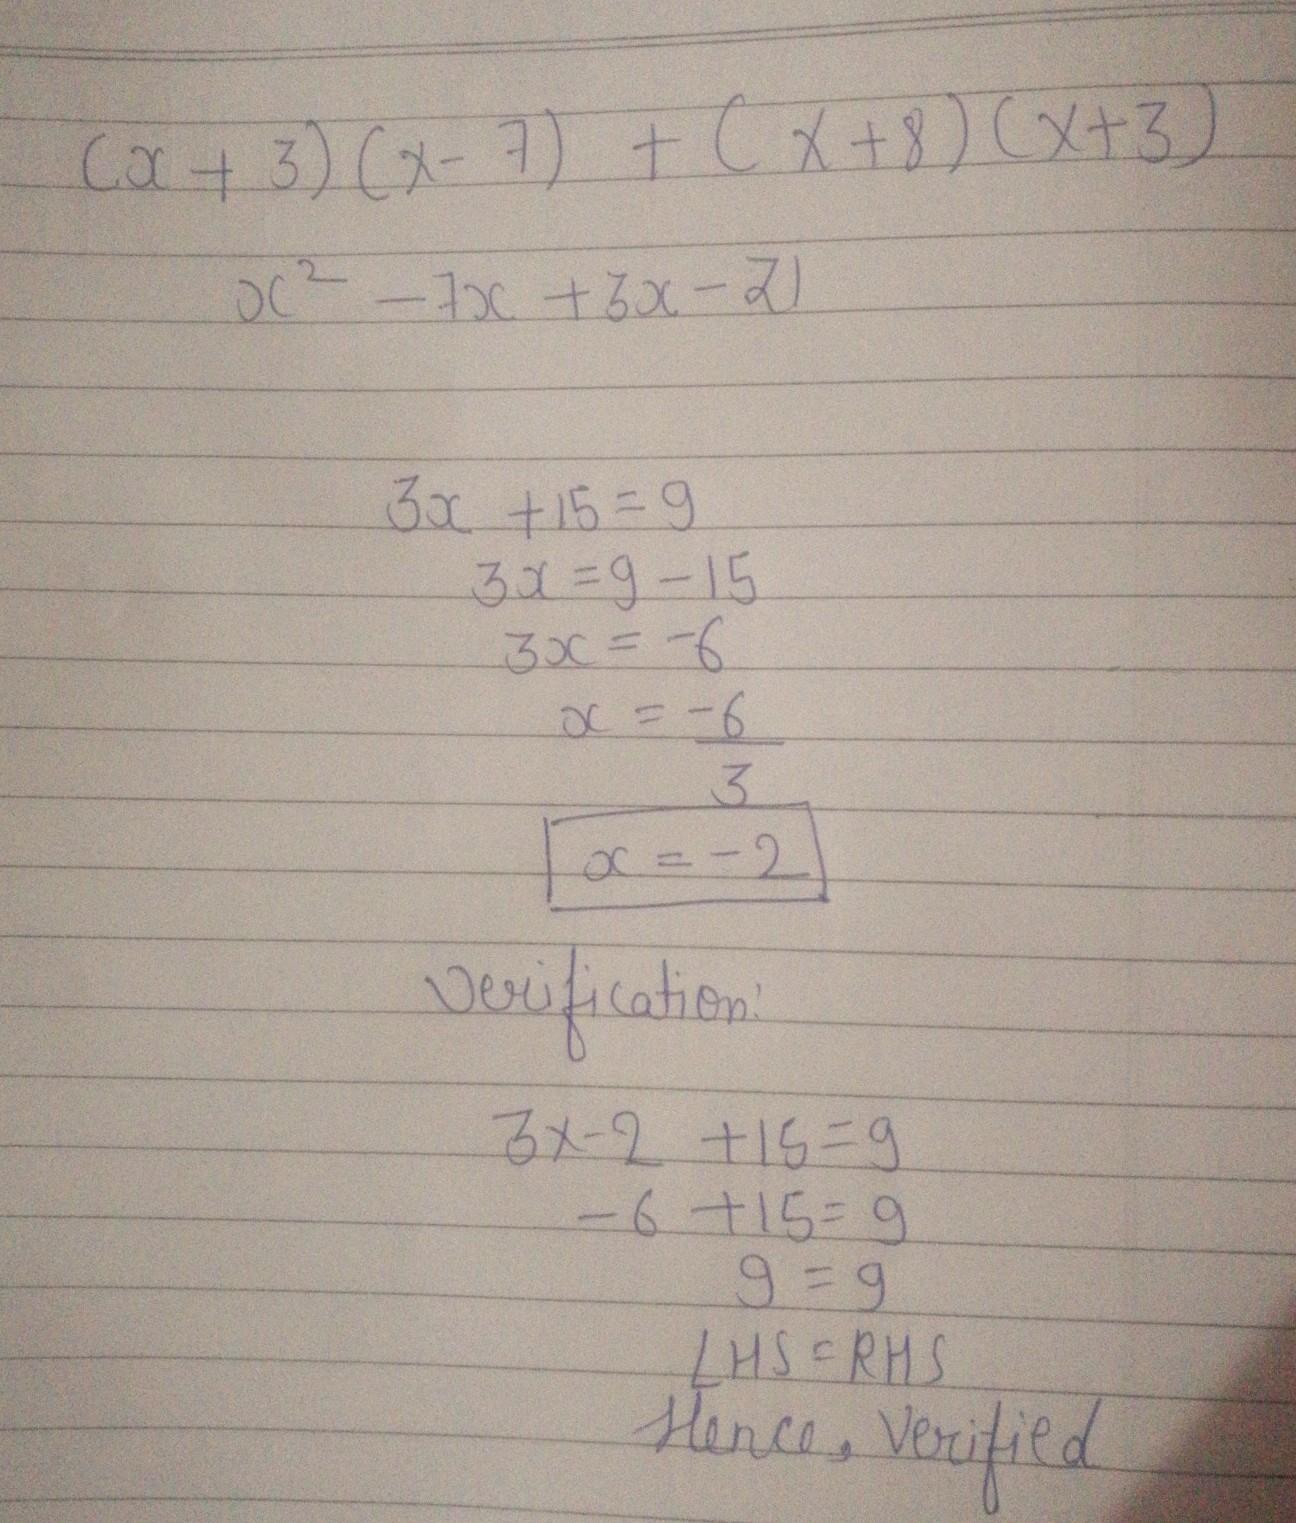 (x + 3)(x - 7) + (x + 8)(x + 3)
x² - 7x + 3x - 21
3x + 15 = 9
3x = 9 - 15
3x = -6
x = -6
3
x = -2
Verification:
3x-2 + 15 = 9
-6 + 15 = 9
9 = 9
LHS = RHS
Hence, Verified